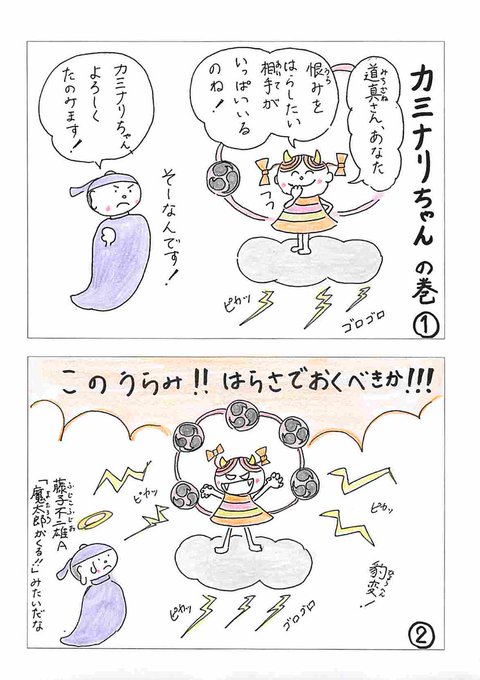 カミナリちゃんの巻
①
道真さん、あなた
恨みを
はらしたい
相手が
いっぱいいる
のね！
フフ
カミナリちゃん
よろしく
たのみます！
そーなんです！
ピカッ
ゴロゴロ
このうらみ!!はらさでおくべきか!!!
ピカッ
ピカッ
豹変！
藤子不二雄A
「魔太郎がくる!!」みたいだな
ピカッ
ゴロゴロ
②